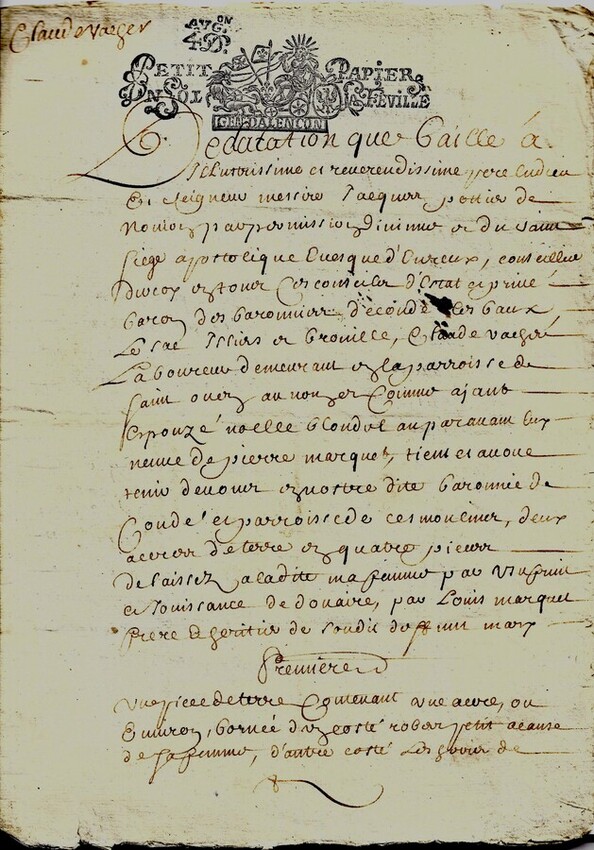 Claude vacher
AVG.ON
49
PETIT PAPIER
VN SOL LA FEVILLE
GEN. DALENCON
Declaration que baille a
Illustrissime et reverendissime pere en dieu
Et seigneur messire Jacques pottier de
Novion par permission divinne et du saint
siege apostolique Evesque d'Evreux, conseiller
du roy en tous ces conseils d'Estat et privé
baron des baronnies de condé les baux
Le sac Illiers et brouille, Claude vacher
Laboureur demeurant en la parroisse de
saint ouen au noyer comme ajant
espouzé noelle blondel auparavant
veuve de pierre marquet, tiens et avoue
tenir de vous en nostre dite baronnie de
Condé et parroisse de ces mou, deux
acres de terre en quatre pieces
delaissez a ladite ma femme par usufruit
et Jouissance de douaire, par Louis marquet
frere et heritier de sondit deffunt mary
Premiere
une piece de terre contenant une acre, ou
Environ, bornée d'un costé robert petit a cause
de sa femme, d'autre costé Les hoirs de